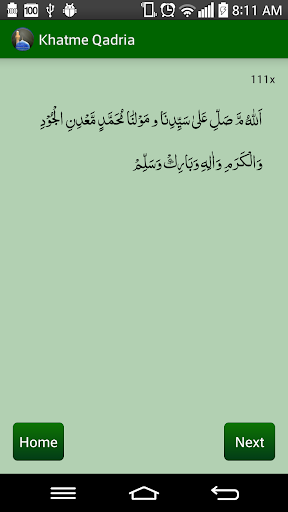 100 100 8:11 AM
Khatme Qadria
111x
اَللّٰهُمَّ صَلِّ عَلٰى سَيِّدِنَا و مَوْلٰنَا مُحَمَّدٍ مَّعْدِنِ الْجُوْدِ
وَالْكَرَمِ وَاٰلِهٖ وَبَارِكْ وَسَلِّمْ
Home Next